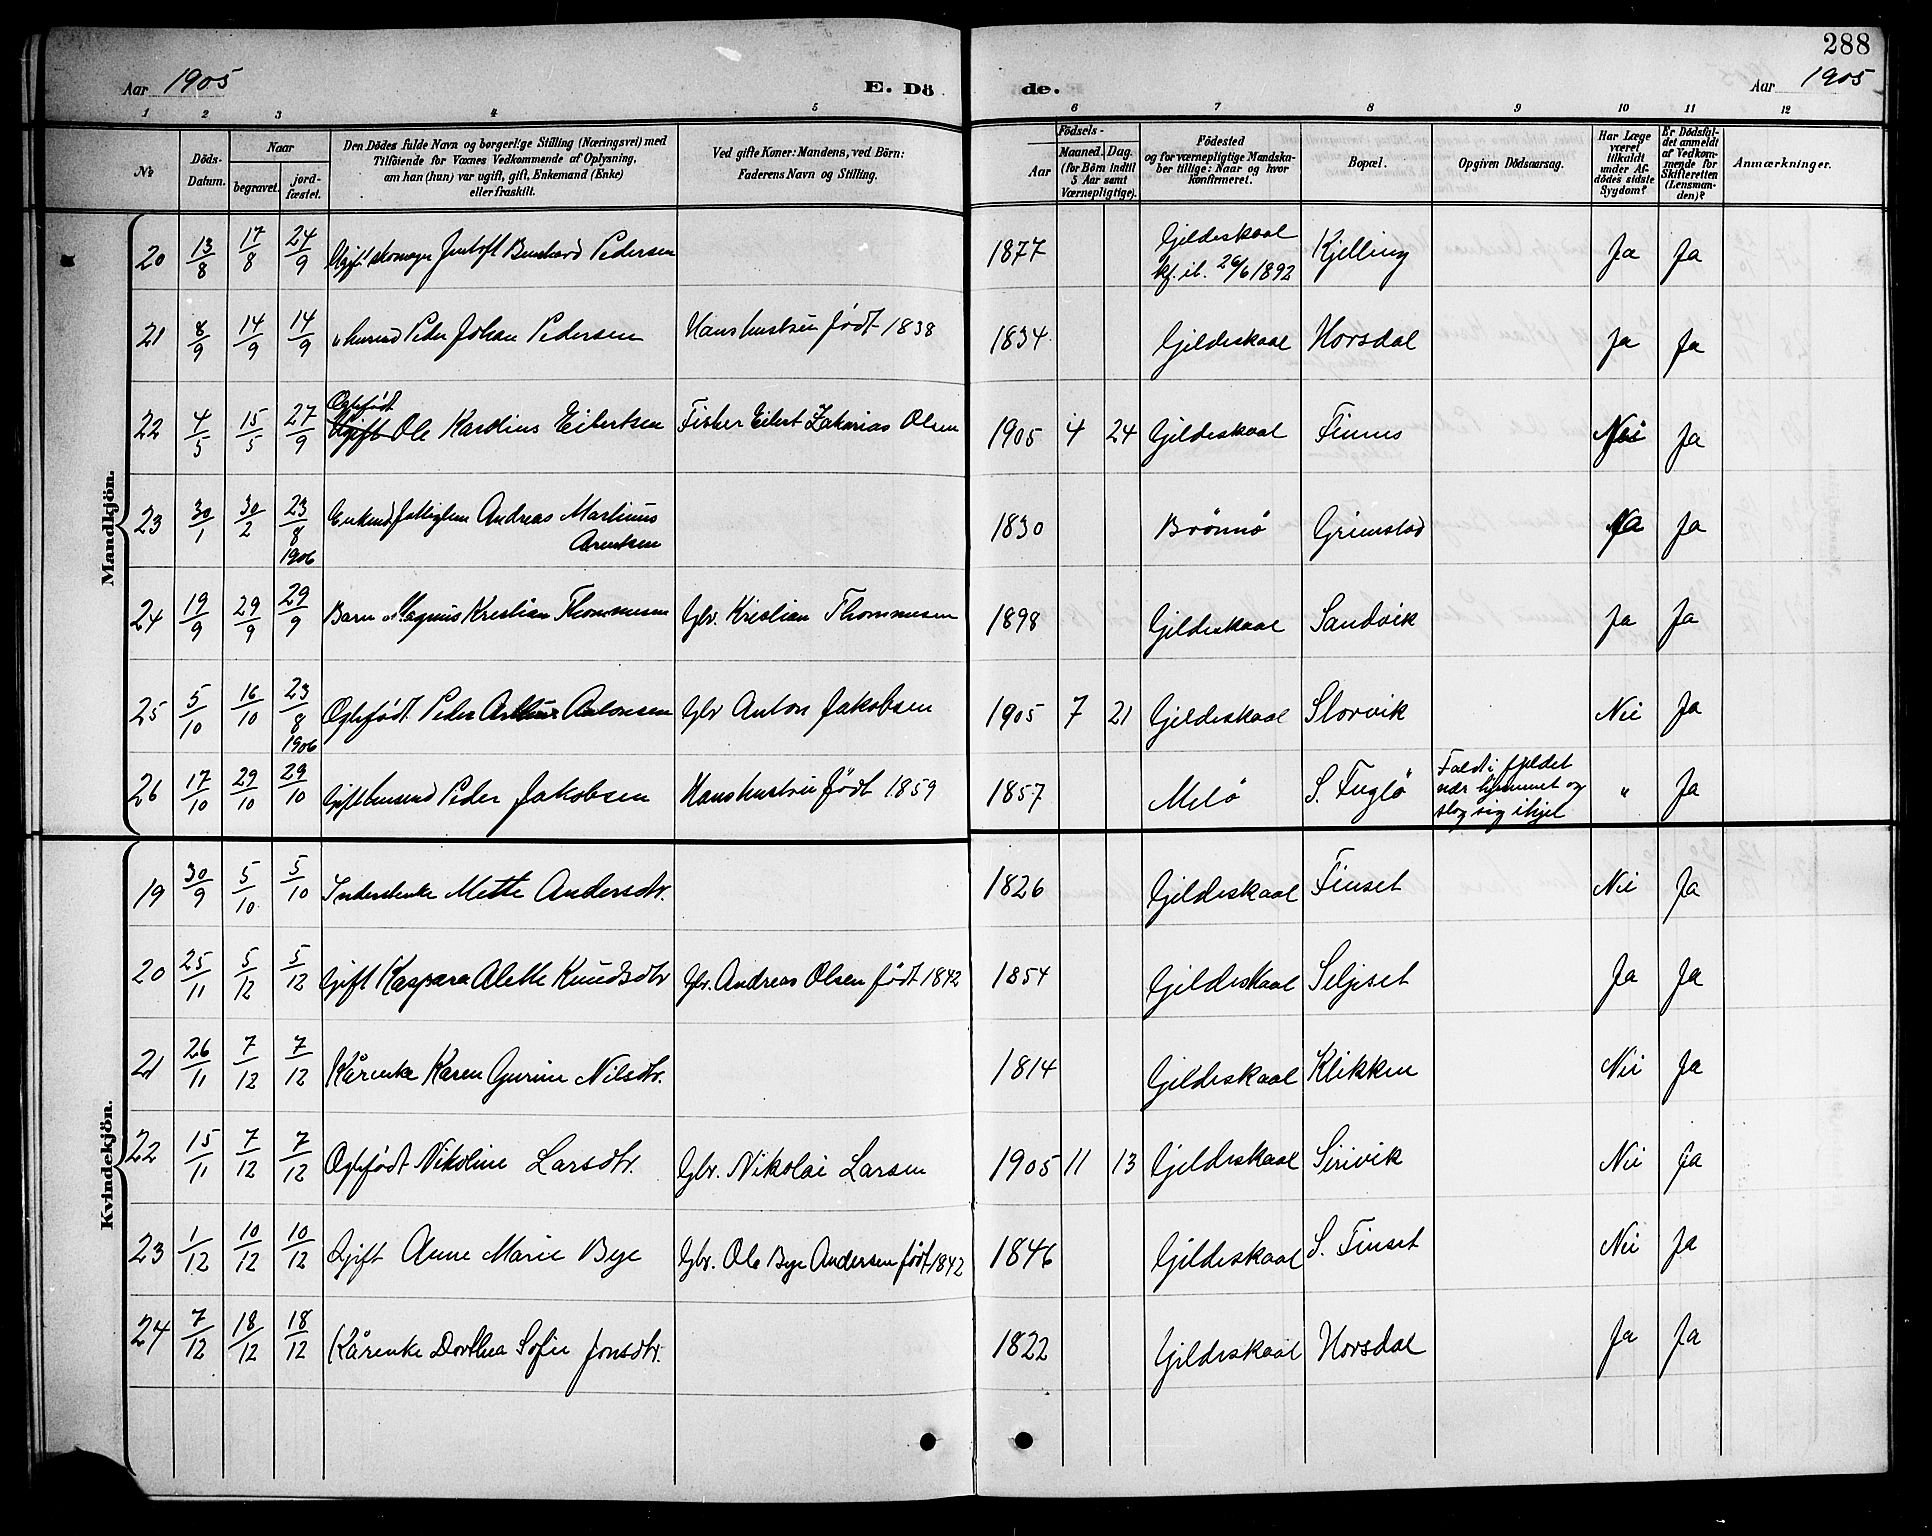 288
Aar 1905 E. Dö de. Aar 1905
1 2 3 4 5 6 7 8 9 10 11 12
No
Döds-Datum.
Naar
begravet.
jord-fæstet.
Den Dödes fulde Navn og borgerlige Stilling (Næringsvei) med
Tilföiende for Voxnes Vedkommende af Oplysning,
om han (hun) var ugift, gift, Enkemand (Enke)
eller fraskilt.
Ved gifte Koner: Mandens, ved Börn:
Faderens Navn og Stilling.
Födsels-
Aar
Maaned. Dag.
(for Börn indtil
5 Aar samt
Værnepligtige).
Födested
og for værnepligtige Mandskaber tillige: Naar og hvor
konfirmeret.
Bopæl.
Opgiven Dödsaarsag.
Har Læge
været
tilkaldt
under Afdödes sidste
Sygdom?
Er Dödsfaldet anmeldt
af Vedkommende for
Skifteretten
(Lensmanden)?
Anmærkninger.
Mandkjön.
20 13/8 17/8 24/9 Ugift Jentoft Bernhard Pedersen 1877 Gildeskaal kf. ib. 26/6 1892 Kjelling Ja Ja
21 8/9 14/9 14/9 Peder Johan Pedersen Hans hustru født 1838 1834 Gildeskaal Horsdal Ja Ja
22 4/5 15/5 27/9 Ugift Egtefødt Ole Karolius Eilertsen Fisker Eilert Zakarias Olsen 1905 4 24 Gildeskaal Finnes Nei Ja
23 30/1 30/2 23/8 1906 Andreas Martinus Arentsen 1830 Brønnø Grimstad Ja Ja
24 19/9 29/9 29/9 Barn Magnus Kristian Thommesen Gbr. Kristian Thommesen 1898 Gildeskaal Sandvik Ja Ja
25 5/10 16/10 23/8 1906 Egtefødt. Peder Arthur Antonsen Gbr Anton Jakobsen 1905 7 21 Gildeskaal Storvik Nei Ja
26 17/10 29/10 29/10 Gift Peder Jakobsen Hans hustru født 1859 1857 Melø S. Fuglø Faldt i fjeldet nær hjemmet og slog sig ihjel " Ja
Kvindekjön.
19 30/9 5/10 5/10 Mette Andersdtr. 1826 Gildeskaal Finset Nei Ja
20 25/11 5/12 5/12 Gift Kaspara Alette Knudsdtr Gbr. Andreas Olsen født 1842 1854 Gildeskaal Seljeset Ja Ja
21 26/11 7/12 7/12 Kårenke Karen Gurine Nilsdtr. 1814 Gildeskaal Klikken Nei Ja
22 15/11 7/12 7/12 Egtefødt Nikoline Larsdtr. Gbr. Nikolai Larsen 1905 11 13 Gildeskaal Sirivik Nei Ja
23 1/12 10/12 10/12 Gift Anne Marie Bye Gbr. Ole Bye Andersen født 1842 1846 Gildeskaal S. Finset Nei Ja
24 7/12 18/12 18/12 Kårenke Dorthea Sofie Jonsdtr. 1822 Gildeskaal Horsdal Ja Ja